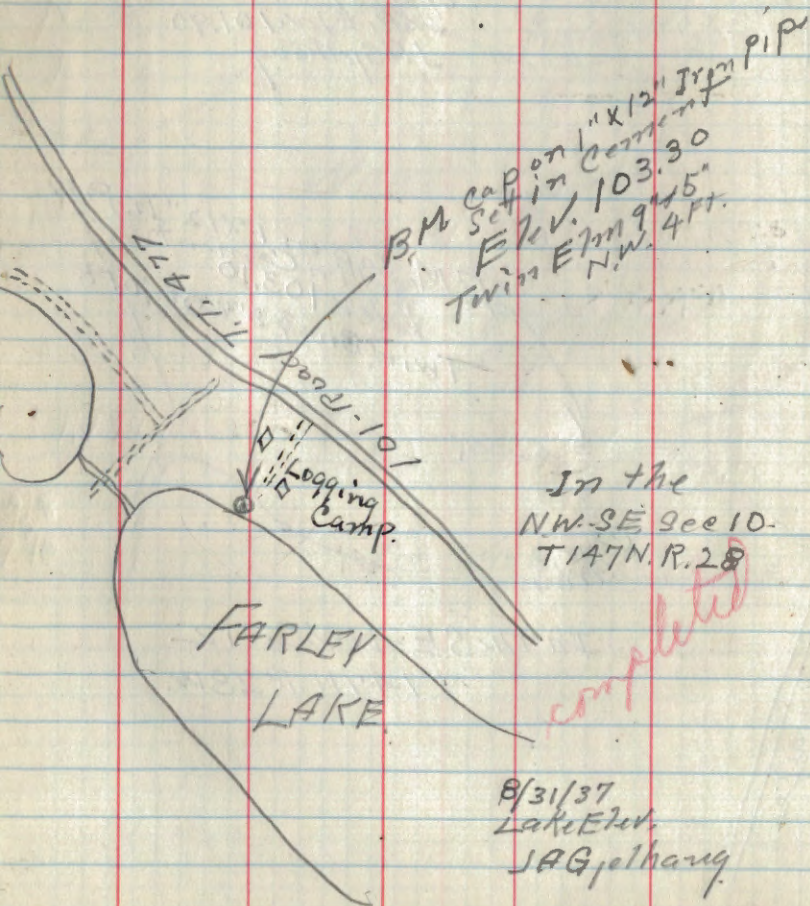 B.M. Cap on 1" X 12" Iron pipe
Set in Cement
Elev. 103.30
Twin Elm 9"+5"
N.W. 4 Ft.
T.T. 477
101-Road
Logging
Camp.
In the
NW-SE Sec 10-
T147N. R.28
completed
FARLEY
LAKE
8/31/37
Lake Elev.